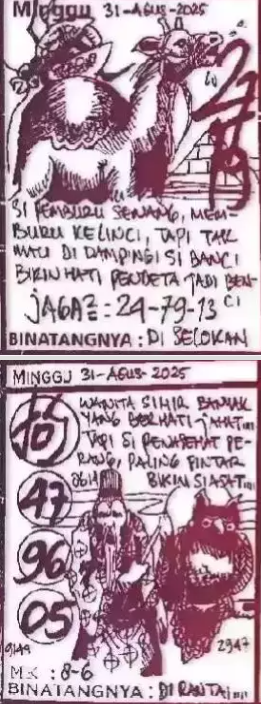 Minggu 31-AGUS-2025
SI PEMBURU SENANG, MEM-
BURU KELINCI, TAPI TAK
MAU DI DAMPINGI SI BANCI
BIKIN HATI PENDETA JADI BEN-
CI
JAGA2 = 24-79-13
BINATANGNYA : DI SELOKAN
MINGGU 31-AGUS-2025
WANITA SIHIR BANYAK
YANG BERHATI JAHAT...
TAPI SI PENASEHAT PE-
RANG, PALING PINTAR
BIKIN SIASAT...
47
96
05
2947
MK : 8-6
BINATANGNYA : DI RANTAI...